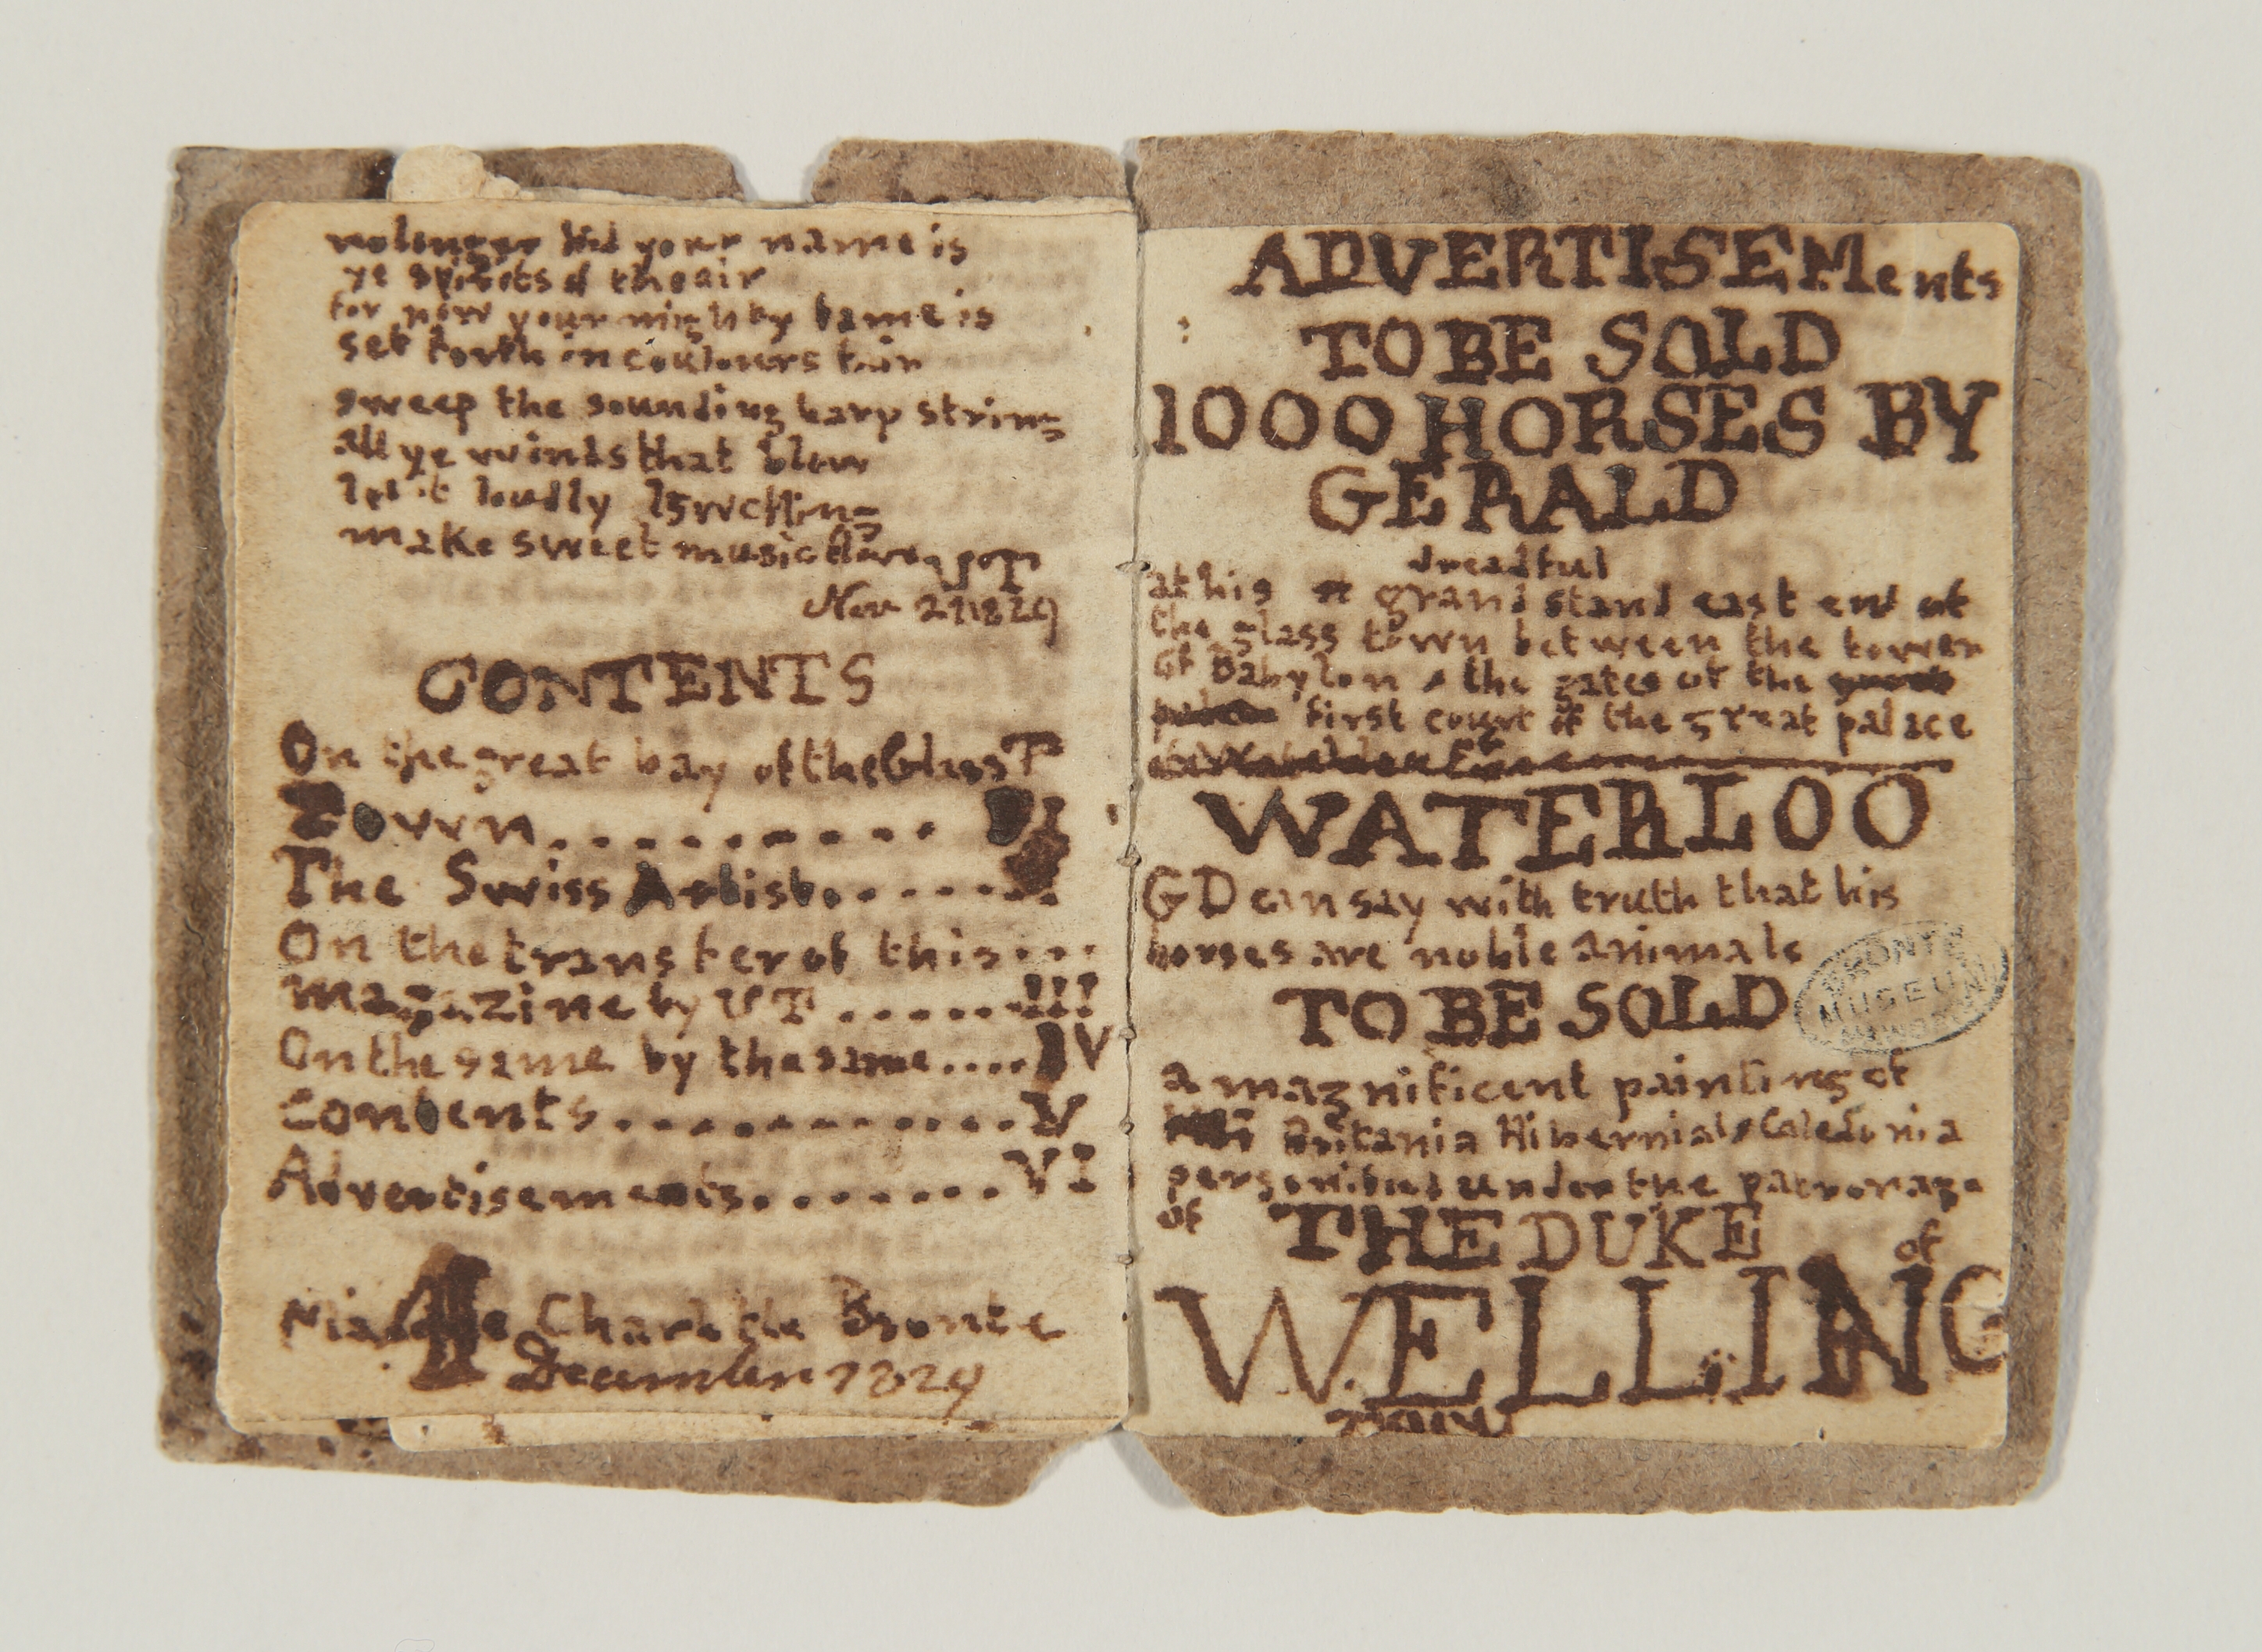 no longer hid your name is
ye spirits of the air
for now your mighty fame is
set forth in coulours fair
sweep the sounding harp string
all ye winds that blow
let it loudly swelling
make sweet music
Nov 21 1829
CONTENTS
On the great bay of the Glass T
Town..........
The Swiss Artist......
On the transfer of this...
magazine by UT......III
On the same by the same....IV
Contents............V
Advertisements........VI
Charlotte Bronte
December 1829
ADVERTISEMents
TO BE SOLD
1000 HORSES BY
GERALD
dreadful
at his grand stand east end of
the glass town between the tower
of Babylon & the gates of the
first court of the great palace
WATERLOO
GD can say with truth that his
horses are noble animals
TO BE SOLD
a magnificent painting of
Britania Hibernia & Caledonia
personified under the patronage
of THE DUKE of
WELLING
TOWN
BRONTE
MUSEUM
HAWORTH